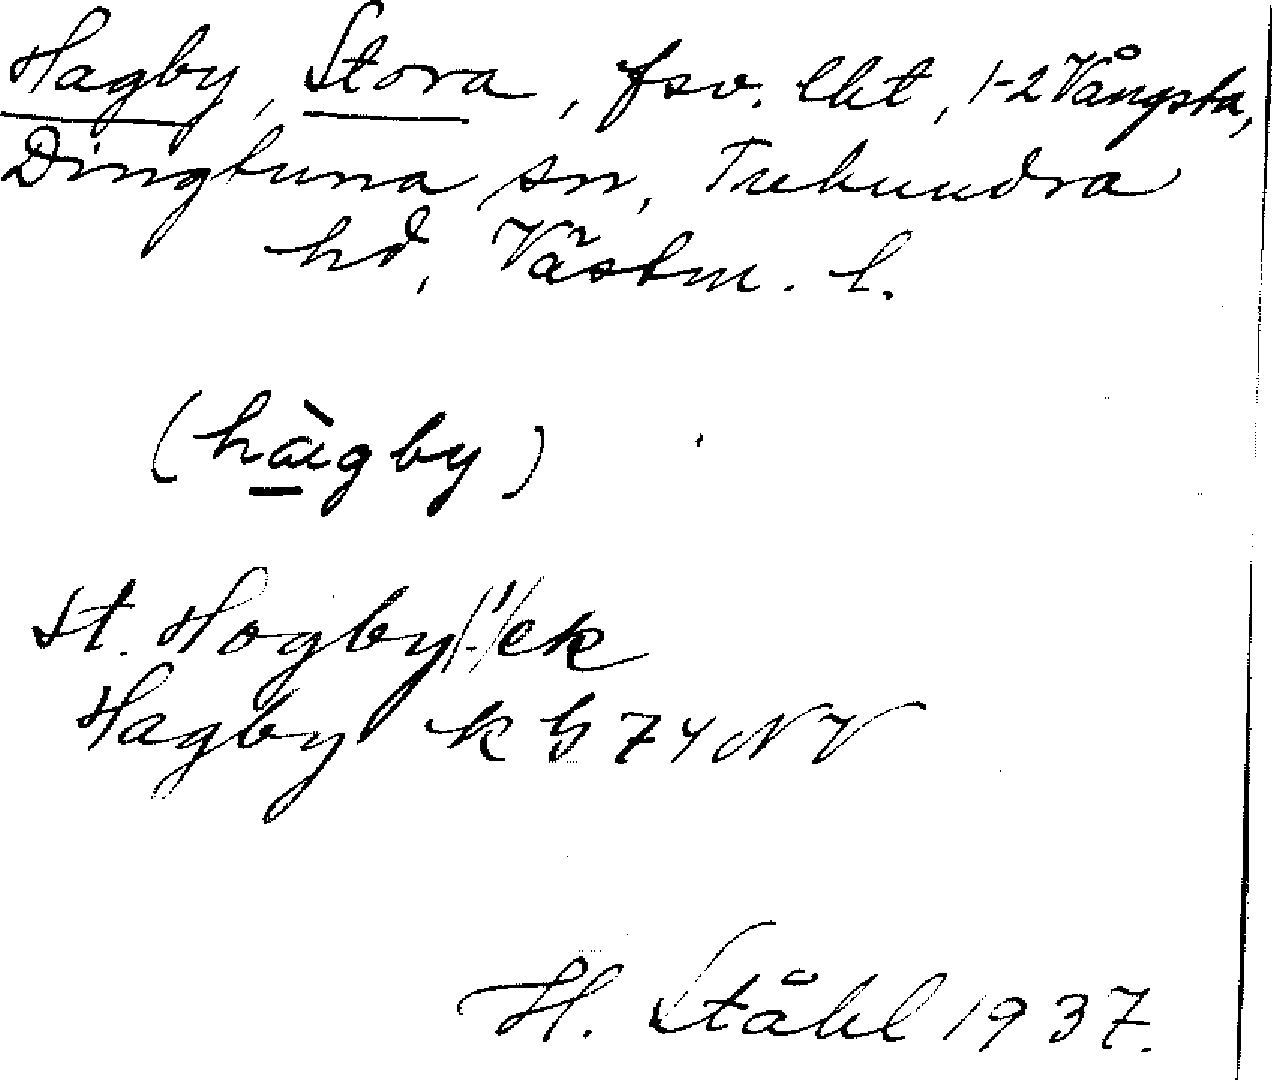 Hagby, Stora, fsv. lht, 1-2 Vångsta,
Dingtuna sn, Tuhundra
hd, Västm. l.
(hàgby)
St. Hogby ek
Hagby k G 74 NV
H. Ståhl 1937.